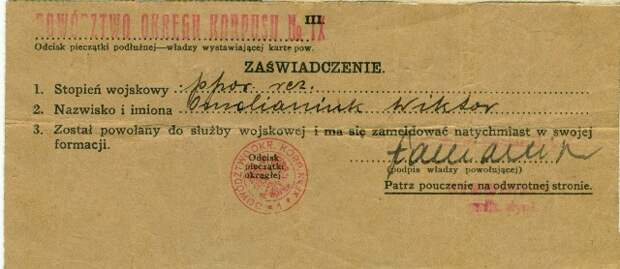 III.
DOWÓDZTWO OKRĘGU KORPUSU No IX
Odcisk pieczątki podłużnej—władzy wystawiającej kartę pow.
ZAŚWIADCZENIE.
1. Stopień wojskowy ppor rez.
2. Nazwisko i imiona Omelianiuk Wiktor
3. Został powołany do służby wojskowej i ma się zameldować natychmiast w swojej
formacji.
Odcisk
pieczątki
okrągłej
DOWÓDZTWO OKR. KORP. Nr IX
* 1 *
(podpis władzy powołującej)
Patrz pouczenie na odwrotnej stronie.